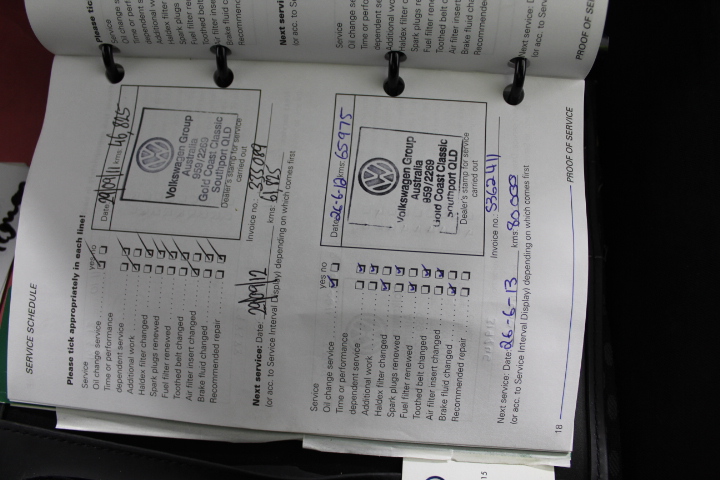 SERVICE SCHEDULE
Please tick appropriately in each line!
Service yes no
Oil change service
Time or performance
dependent service
Additional work
Haldex filter changed
Spark plugs renewed
Fuel filter renewed
Toothed belt changed
Air filter insert changed
Brake fluid changed
Recommended repair
Date: 29/09/11 kms: 46,825
Volkswagen Group
Australia
959/2269
Gold Coast Classic
Southport QLD
Dealer's stamp for service
carried out
Invoice no.: 335089
Next service: Date: 29/09/12 kms: 61,825
(or acc. to Service Interval Display) depending on which comes first
Service yes no
Oil change service
Time or performance
dependent service
Additional work
Haldex filter changed
Spark plugs renewed
Fuel filter renewed
Toothed belt changed
Air filter insert changed
Brake fluid changed
Recommended repair
Date: 26-6-12 kms: 65975
Volkswagen Group
Australia
959/2269
Gold Coast Classic
Southport QLD
Dealer's stamp for service
carried out
Invoice no.: 5362411
Next service: Date: 26-6-13 kms 80000
(or acc. to Service Interval Display) depending on which comes first
18
PROOF OF SERVICE
Please tick
Service
Oil change s
Time or perfo
dependent s
Additional wor
Haldex filter c
Spark plugs r
Fuel filter ren
Toothed belt
Air filter inser
Brake fluid c
Recommen
Next servic
(or acc. to S
Service
Oil change s
Time or perfo
dependent s
Additional work
Haldex filter c
Spark plugs re
Fuel filter rene
Toothed belt c
Air filter insert
Brake fluid cha
Recommende
Next service: D
(or acc. to Servic
PROOF OF SE
15